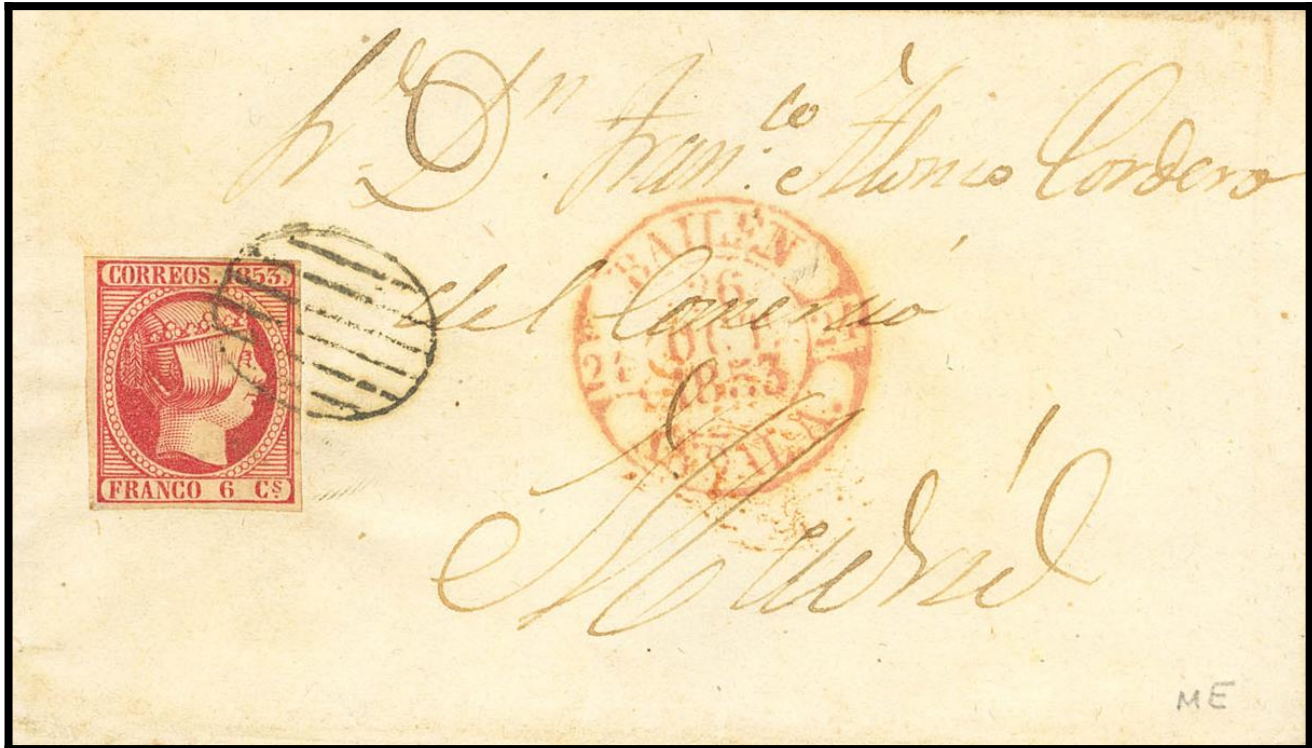 Sr. Dn. Fran.co Alonso Cordero
del Comercio
Madrid
CORREOS. 1853.
FRANCO 6 Cs
BAILEN
26
OCT
1853
ME